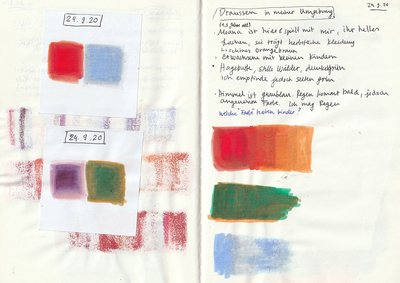 29.9.20
29.9.20
29.9.20
Draussen in meiner Umgebung
Moana ist hier & spielt mit mir, ihr helles
Lachen, sie trägt herbstliche Kleidung
schönes Orangebraun
Erwachsene mit kleinen Kindern
Hagebutte, stille Wälder, dunkelgrün
Ich empfinde jedoch selten grün
Himmel ist graublau. Regen kommt bald, jedoch
angenehme Farbe. Ich mag Regen
welche Farbe haben kinder?